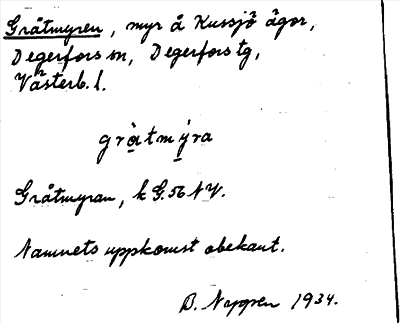 Gråtmyren, myr å Kussjö ägor,
Degerfors sn, Degerfors tg,
Västerb. l.
gràtmýra
Gråtmyran, k G.56 NV.
Namnets uppkomst obekant.
D. Nygren 1934.